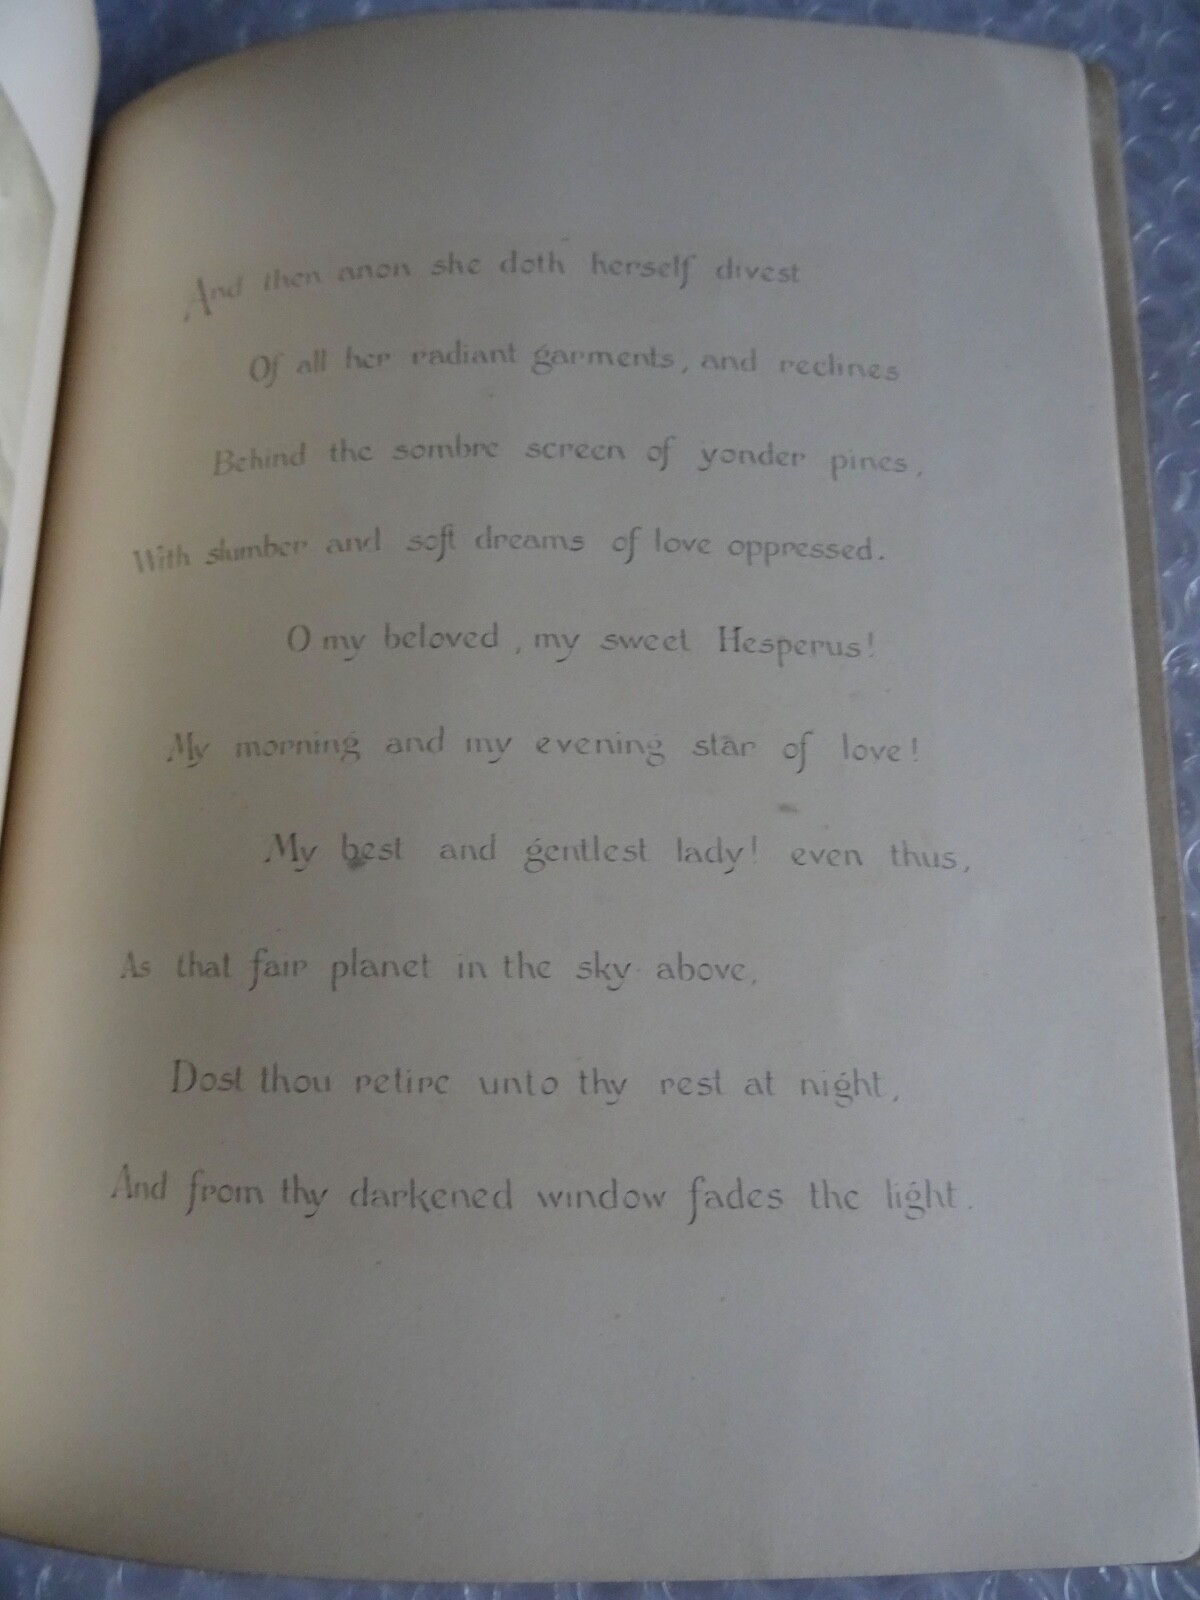 And then anon she doth herself divest
Of all her radiant garments, and reclines
Behind the sombre screen of yonder pines,
With slumber and soft dreams of love oppressed.
O my beloved, my sweet Hesperus!
My morning and my evening star of love!
My best and gentlest lady! even thus,
As that fair planet in the sky above,
Dost thou retire unto thy rest at night,
And from thy darkened window fades the light.